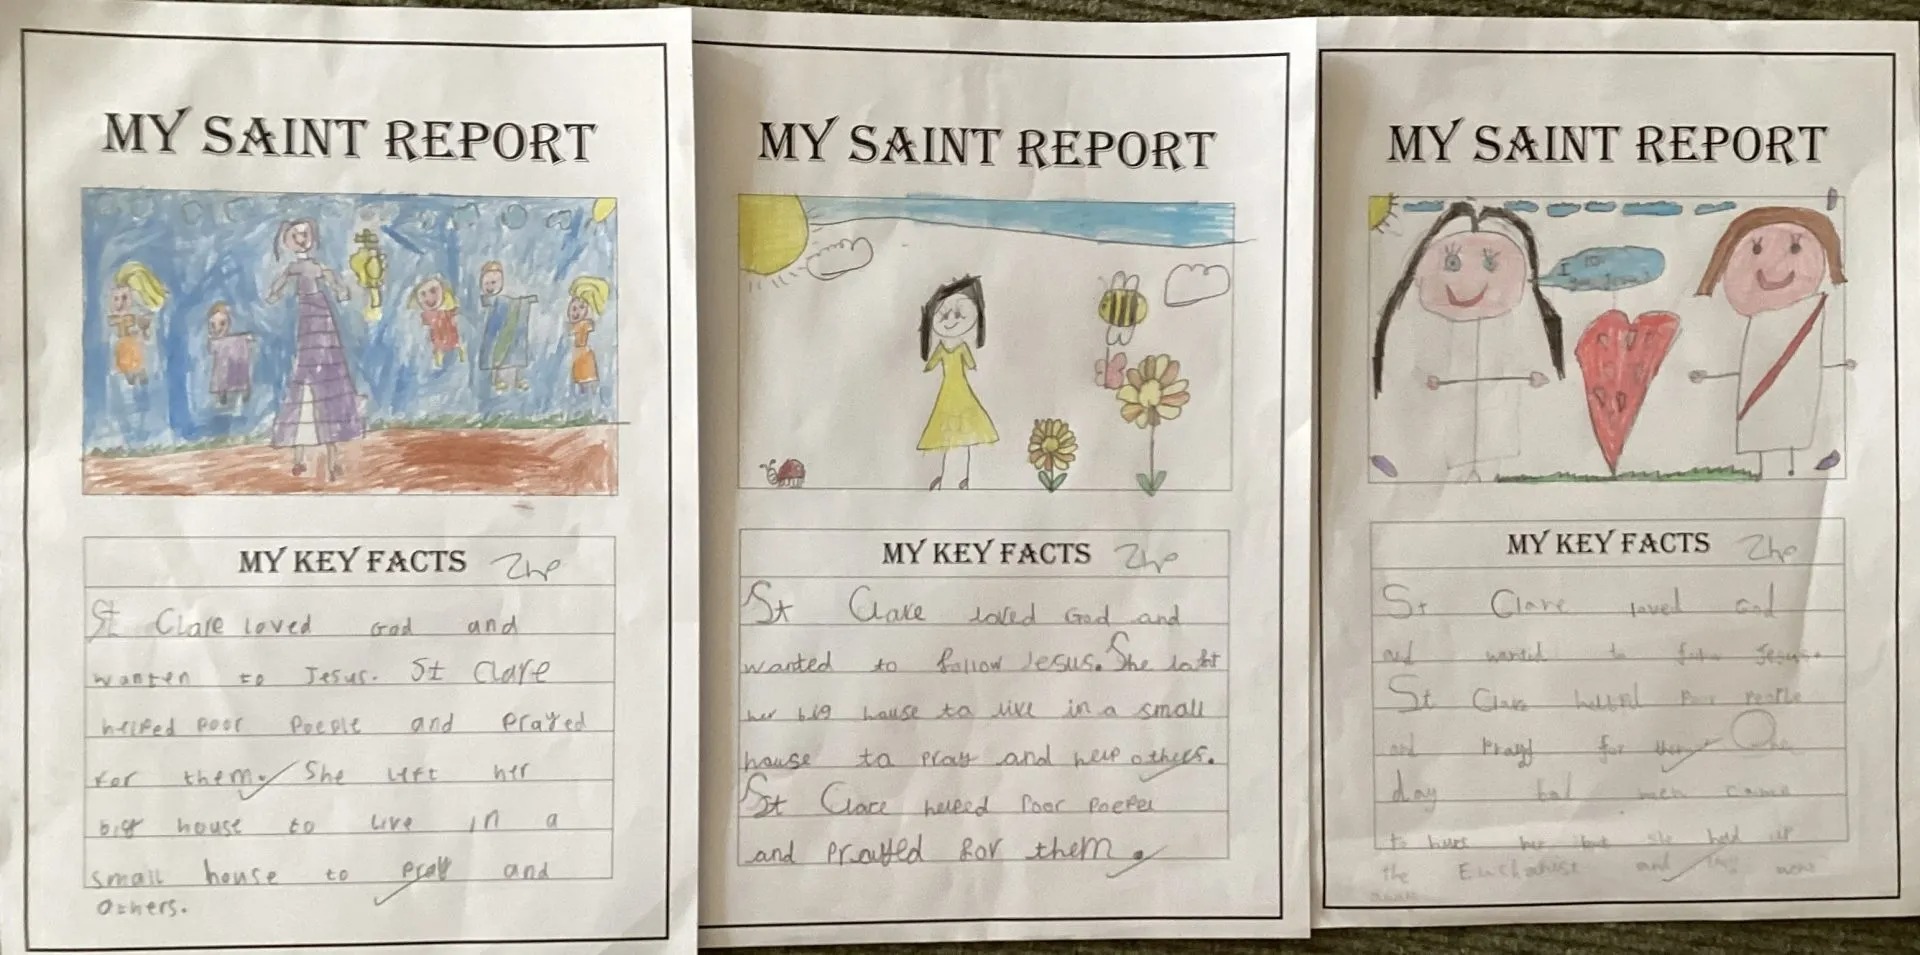 MY SAINT REPORT
MY KEY FACTS
St Clare loved God and
wanten to Jesus. St Clare
helped poor poeple and prayed
for them. She left her
big house to live in a
small house to pray and
others.
MY SAINT REPORT
MY KEY FACTS
St Clare loved God and
wanted to follow Jesus. She left
her big house to live in a small
house to pray and help others.
St Clare helped Poor Poeple
and Prayed for them.
MY SAINT REPORT
I
MY KEY FACTS
St Clare loved God
and wanted to Jesus.
St Clare poor people
and Prayd for them One
day bad men came
to her but she held up
the and they went